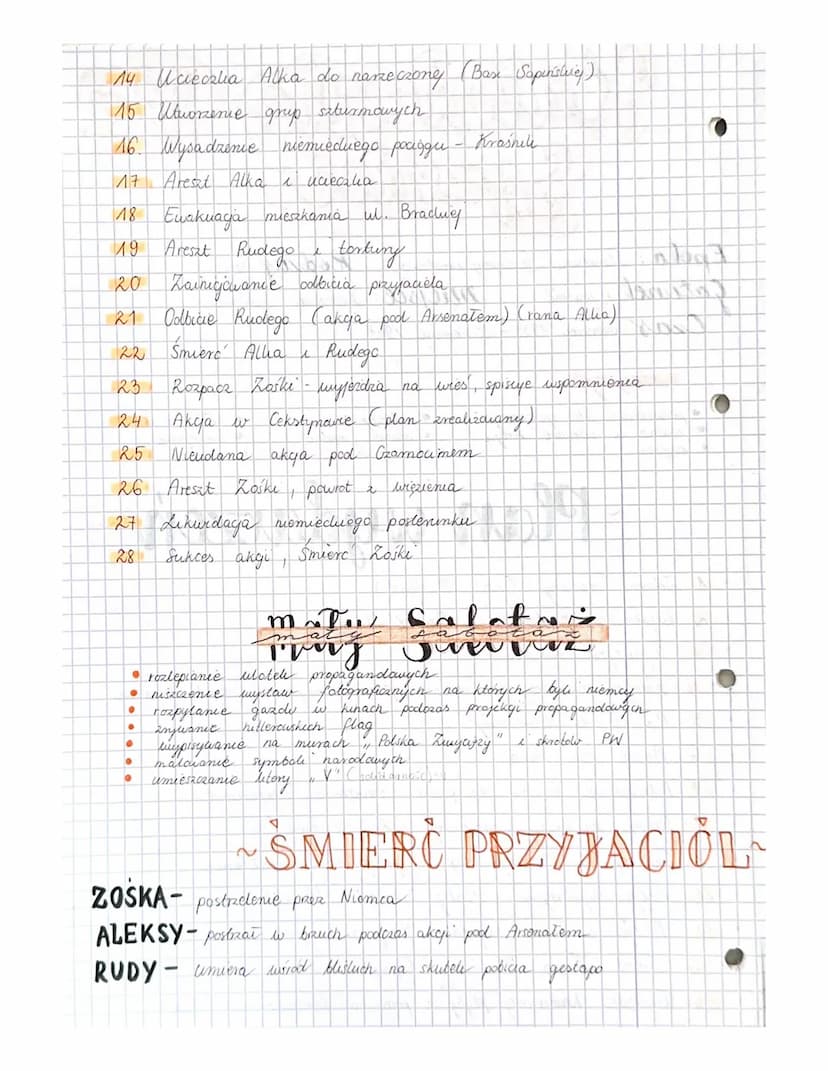 14 Ucieczka Alka do narzeczonej (Basi Sapińskiej)
15 Utworzenie grup szturmowych
16. Wysadzenie niemieckiego pociągu - Kraśnik
17 Areszt Alka i ucieczka
18 Ewakuacja mieszkania ul. Brackiej
19 Areszt Rudego i tortury
20 Zainicjowanie odbicia przyjaciela
21 Odbicie Rudego (akcja pod Arsenałem) (rana Alka)
22 Śmierć Alka i Rudego
23 Rozpacz Zośki - wyjeżdża na wieś, spisuje wspomnienia
24 Akcja w Celestynowie (plan zrealizowany)
25 Nieudana akcja pod Czarnocinem
26 Areszt Zośki, powrót z więzienia
27 Likwidacja niemieckiego posterunku
28 Sukces akcji, Śmierć Zośki
Mały Sabotaż
mały sabotaż
• rozlepianie ulotek propagandowych
• niszczenie wystaw fotograficznych na których byli niemcy
• rozpylanie gazów w kinach podczas projekcji propagandowych
• zrywanie hitlerowskich flag
• wypisywanie na murach „Polska Zwycięży" i skrótów PW
• malowanie symboli narodowych
• umieszczanie litery „V" (solidarność)
~ŚMIERĆ PRZYJACIÓŁ~
ZOŚKA- postrzelenie przez Niemca
ALEKSY- postrzał w brzuch podczas akcji pod Arsenałem
RUDY - umiera wśród bliskich na skutek pobicia gestapo